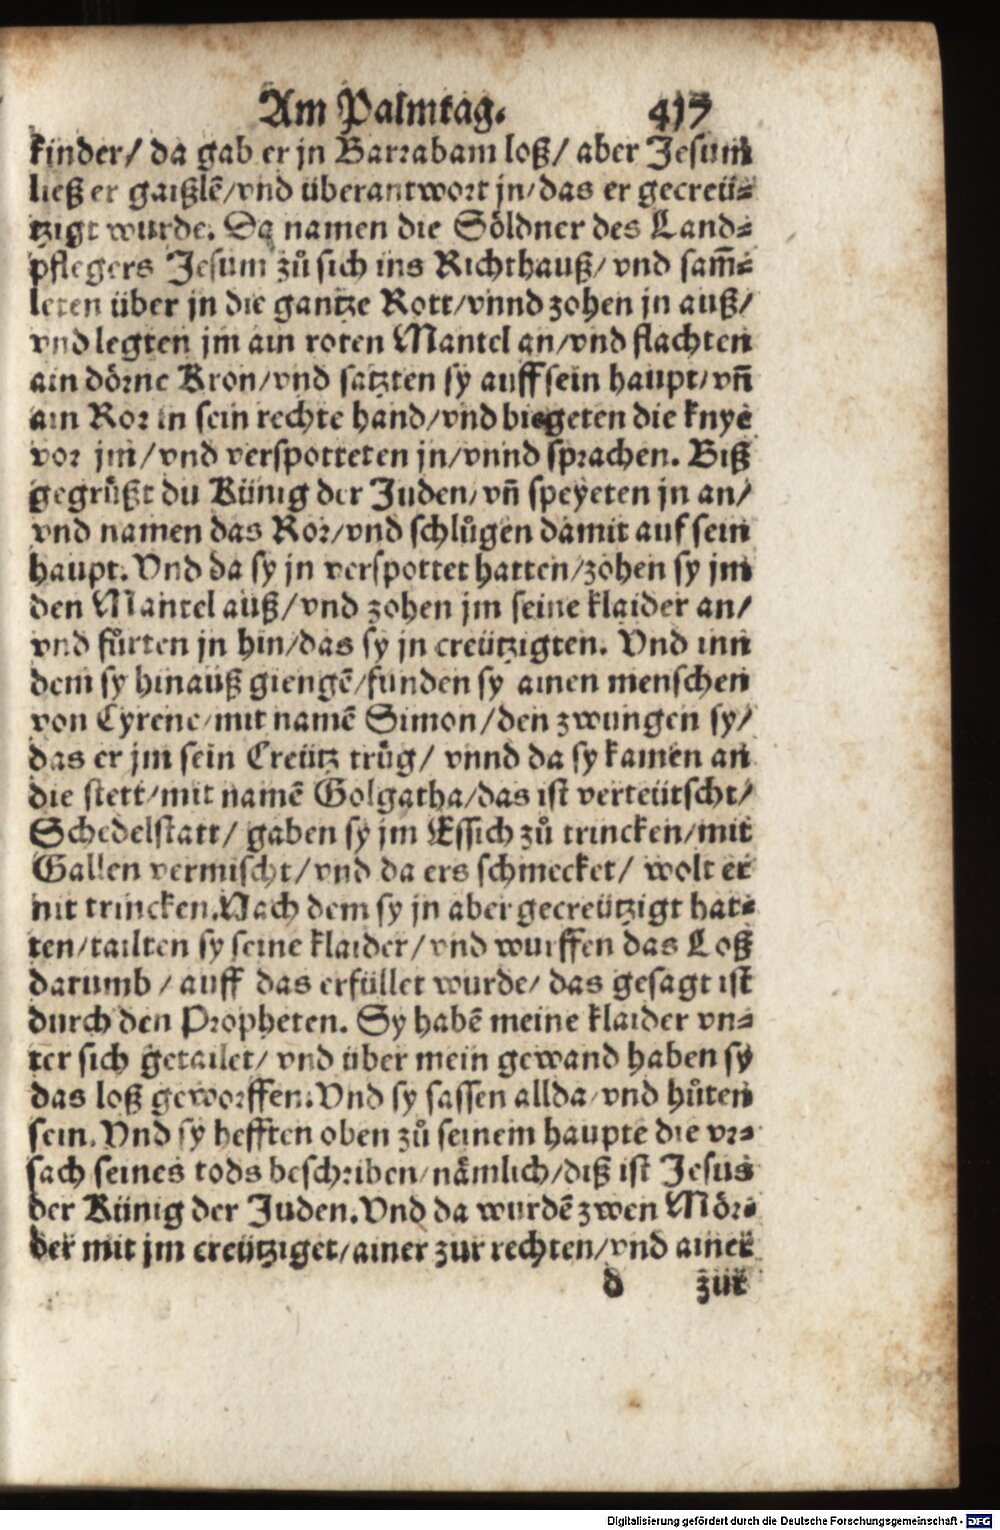 Am Palmtag. 417
kinder/ da gab er jn Barrabam loß/ aber Jesum
ließ er gaißlē/vnd überantwort jn/das er gecreü⸗
tzigt wurde. Da namen die Söldner des Land⸗
pflegers Jesum zů sich ins Richthauß/ vnd sam̄⸗
leten über jn die gantze Rott/vnnd zohen jn auß/
vnd legten jm ain roten Mantel an/vnd flachten
ain dörne Kron/vnd satzten sy auff sein haupt/vn̄
ain Ror in sein rechte hand/vnd biegeten die knye
vor jm/vnd verspotteten jn/vnnd sprachen. Biß
gegrüßt du Künig der Juden/vn̄ speyeten jn an/
vnd namen das Ror/vnd schlůgen damit auf sein
haupt. Vnd da sy jn verspottet hatten/zohen sy jm
den Mantel auß/vnd zohen jm seine klaider an/
vnd fůrten jn hin/das sy jn creützigten. Vnd inn
dem sy hinauß giengē/funden sy ainen menschen
von Cyrene/mit namē Simon/den zwungen sy/
das er jm sein Creütz trůg/ vnnd da sy kamen an
die stett/mit namē Golgatha/das ist verteütscht/
Schedelstatt/ gaben sy jm Essich zů trincken/mit
Gallen vermischt/vnd da ers schmecket/ wolt er
nit trincken. Nach dem sy jn aber gecreützigt hat⸗
ten/tailten sy seine klaider/vnd wurffen das Loß
darumb/ auff das erfüllet wurde/ das gesagt ist
durch den Propheten. Sy habē meine klaider vn⸗
ter sich getailet/ vnd über mein gewand haben sy
das loß geworffen. Vnd sy sassen allda/vnd hůten
sein. Vnd sy hefften oben zů seinem haupte die vr⸗
sach seines tods beschriben/nämlich/diß ist Jesus
der Künig der Juden. Vnd da wurdē zwen Mör⸗
der mit jm creütziget/ainer zur rechten/vnd ainer
d zur
Digitalisierung gefördert durch die Deutsche Forschungsgemeinschaft - DFG